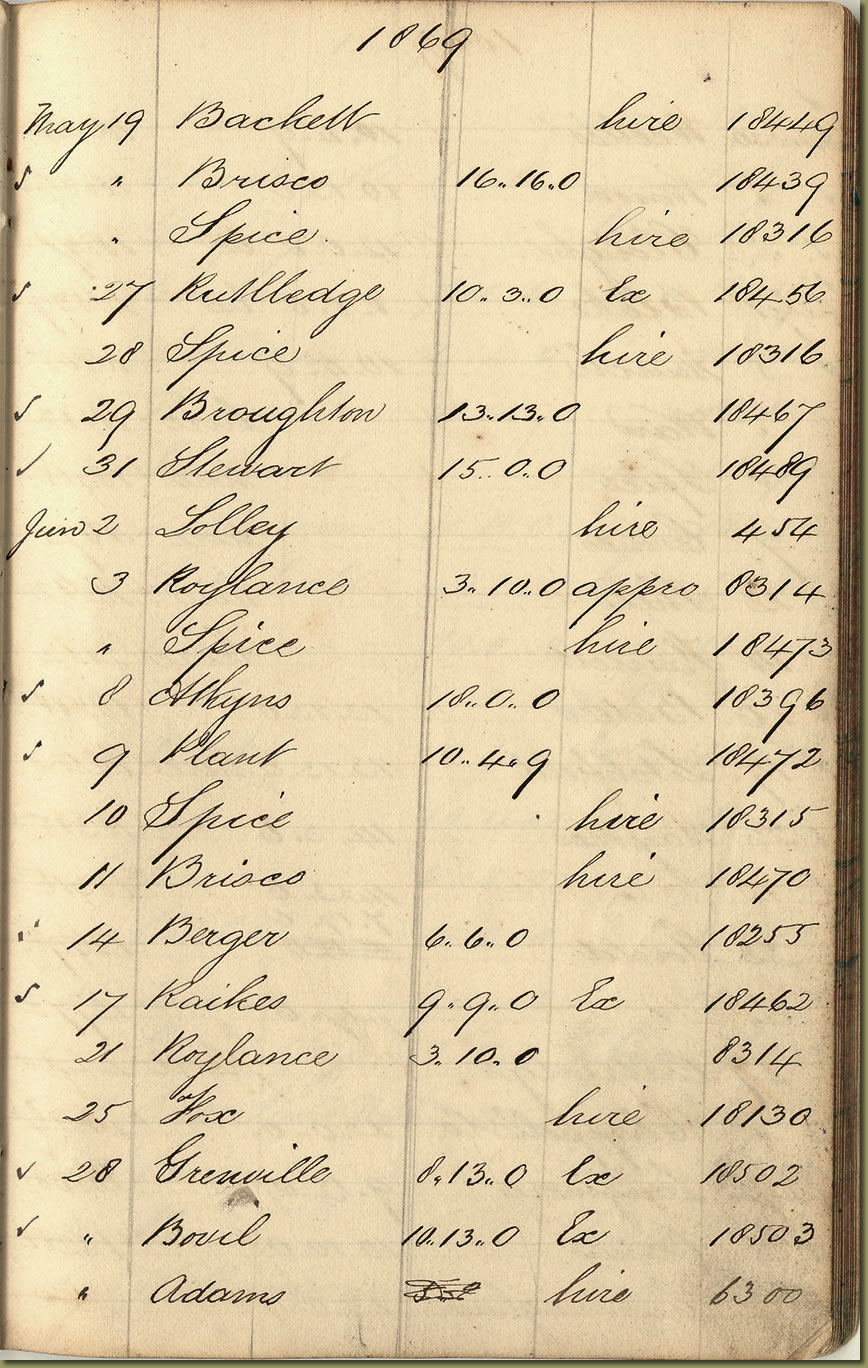 1869
May 19 Backett hire 18449
" Brisco 16..16..0 18439
" Spice hire 18316
27 Rutlledge 10..3..0 Ex 18456
28 Spice hire 18316
29 Broughton 13..13..0 18467
31 Stewart 15..0.0 18489
Jun 2 Lolley hire 454
3 Roylance 3..10..0 appro 8314
" Spice hire 18473
8 Atkyns 18..0..0 18396
9 Plant 10..4..9 18472
10 Spice hire 18315
11 Brisco hire 18470
14 Berger 6..6..0 18255
17 Raikes 9..9..0 Ex 18462
21 Roylance 3..10..0 8314
25 Fox hire 18130
28 Grenville 8..13..0 Ex 18502
" Bovil 10..13..0 Ex 18503
" Adams hire 6300